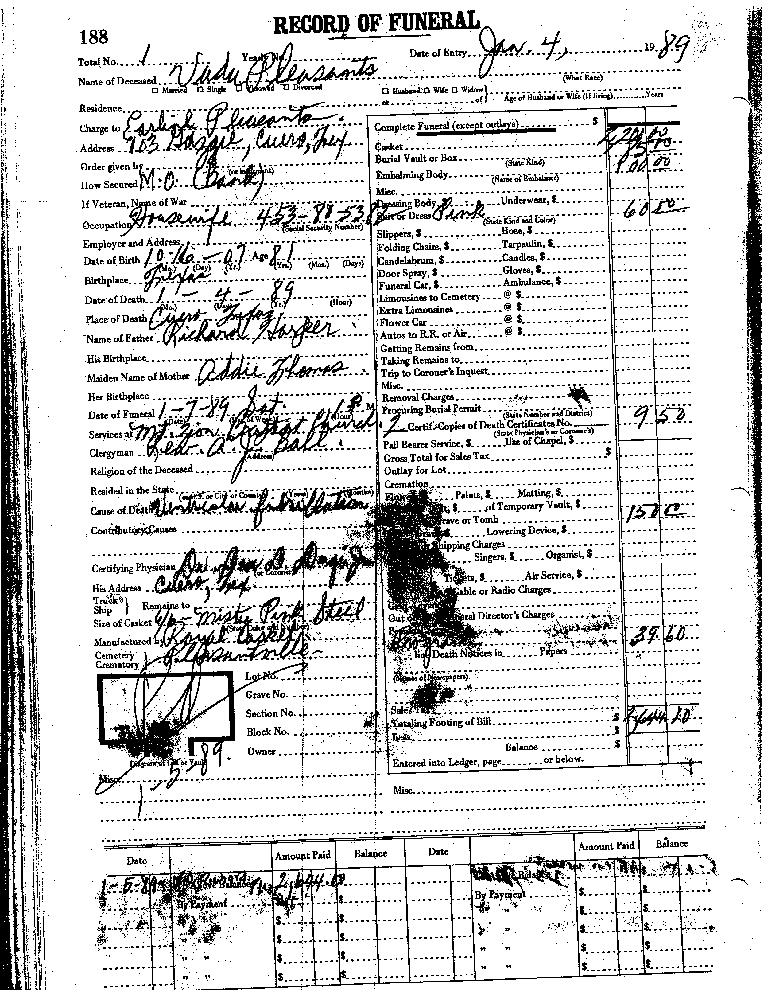 188
RECORD OF FUNERAL
Total No. 1 Yearly No.
Date of Entry Jan. 4, 1989
Name of Deceased Vada Pleasants
(What Race)
Married Single Widowed Divorced
Husband Wife Widow
or of Age of Husband or Wife (if living) Years
Residence
Charge to Pleasants
Address 903 Cuero, Tex
Order given by
How Secured M.O. (Bank)
If Veteran, Name of War
Occupation Housewife 453-88-538
(Social Security Number)
Employer and Address
Date of Birth 10-16-07 Age 81
(Mo.) (Day) (Yr.) (Yrs.) (Mos.) (Days)
Birthplace Texas
Date of Death 1-4-89 (Hour)
Place of Death Cuero, Texas
Name of Father Richard Harper
His Birthplace
Maiden Name of Mother Addie Thomas
Her Birthplace
Date of Funeral 1-7-89 Sat. 1 P M
Services at Mt. Zion Baptist Church
Clergyman Rev. A. J. Ball
(Address)
Religion of the Deceased
Resided in the State
Cause of Death Ventricular fibrillation
Contributory Causes
Certifying Physician
His Address Cuero, Tex
Truck's Ship Remains to
Size of Casket 6/6 - Misty Pink Steel
Manufactured Royal Casket
Cemetery Crematory Pleasantville
Lot No.
Grave No.
Section No.
Block No.
Owner
Misc. 1-5-89.
Complete Funeral (except outlays) $
Casket
Burial Vault or Box
(State Kind)
Embalming Body 100 00
(Name of Embalmer)
Misc.
Dressing Body Underwear, $
Suit or Dress Pink 60 00
(State Kind and Color)
Slippers, $ Hose, $
Folding Chairs, $ Tarpaulin, $
Candelabrum, $ Candles, $
Door Spray, $ Gloves, $
Funeral Car, $ Ambulance, $
Limousines to Cemetery @ $
Extra Limousines @ $
Flower Car @ $
Autos to R.R. or Air @ $
Getting Remains from
Taking Remains to
Trip to Coroner's Inquest
Misc.
Removal Charges
Procuring Burial Permit
(State Number and District)
2 Certif. Copies of Death Certificates No. 9 50
(State Physician's or Coroner's)
Pall Bearer Service, $ Use of Chapel, $
Gross Total for Sales Tax $
Outlay for Lot
Cremation
Palms, $ Matting, $
of Temporary Vault, $
Grave or Tomb
Lowering Device, $
Shipping Charges
Singers, $ Organist, $
Tickets, $ Air Service, $
Cable or Radio Charges
Director's Charges
39.60
Death Notices in Papers
(Names of Newspapers)
Sales Tax
Totaling Footing of Bill $
Less
Balance $
Entered into Ledger, page or below.
Misc.
Date Amount Paid Balance Date Amount Paid Balance
1-5-89
By Payment $ $ By Payment $ $
" " $ $ " " $ $
" " $ $ " " $ $
" " $ $ " " $ $
" " $ $ " " $ $